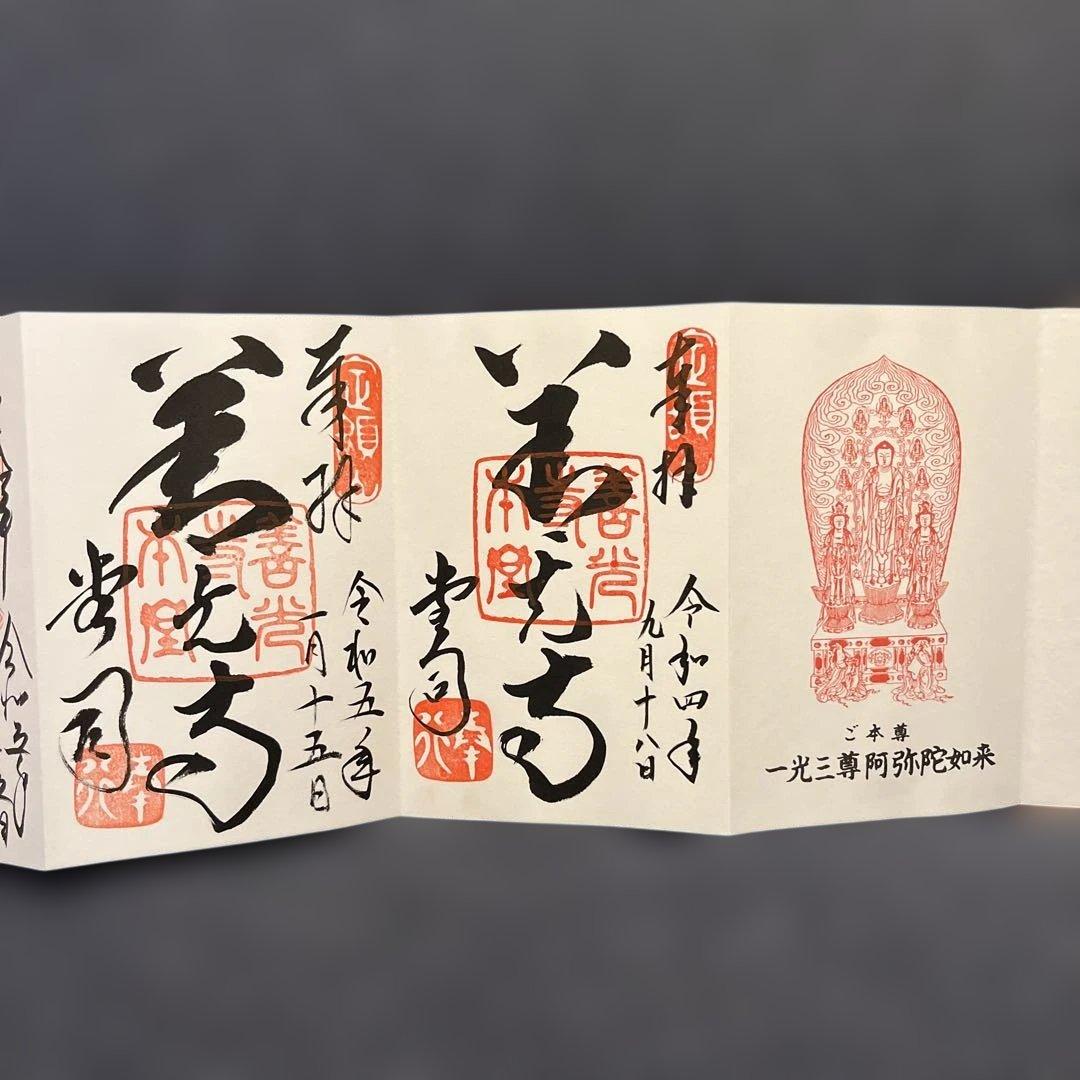 ご本尊
一光三尊阿弥陀如来
奉拝
令和四年
九月十八日
善光寺
善光寺本堂
堂司
奉行
奉拝
令和五年
一月十五日
善光寺
善光寺本堂
堂司
奉行